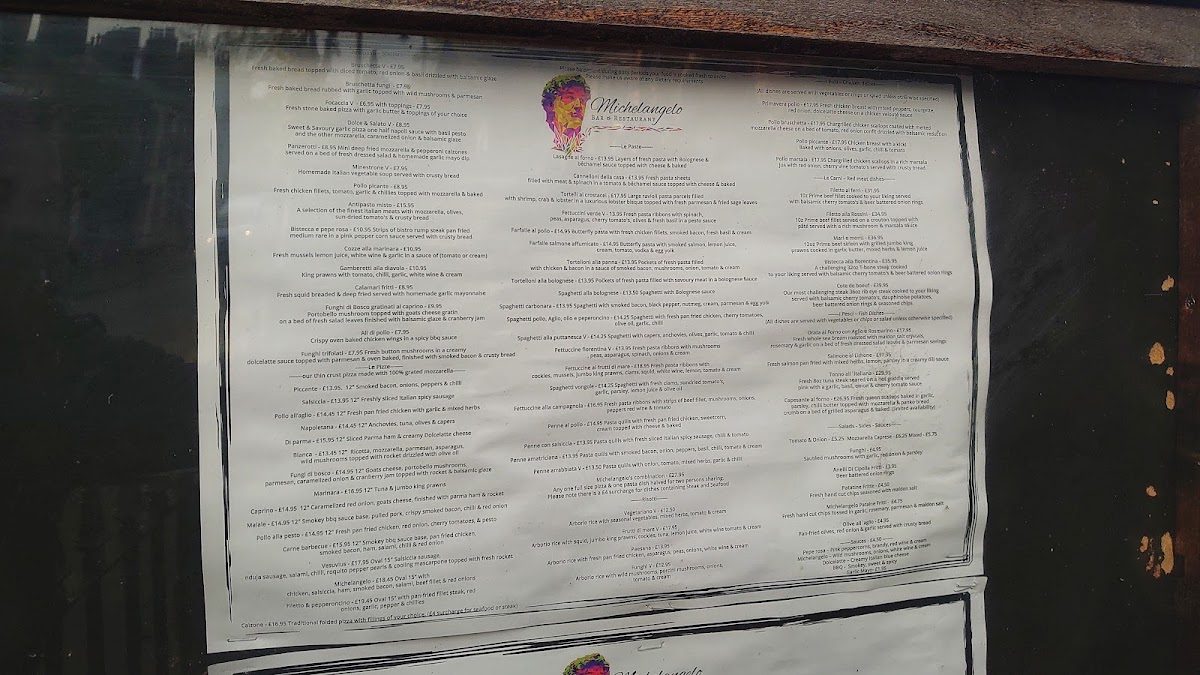 Bruschetta V - £7.95
Fresh baked bread topped with diced tomato, red onion & basil drizzled with balsamic glaze
Bruschetta fungi - £7.95
Fresh baked bread rubbed with garlic topped with wild mushrooms & parmesan
Focaccia V - £6.95 with toppings - £7.95
Fresh stone baked pizza with garlic butter & toppings of your choice
Dolce & Salato V - £8.95
Sweet & Savoury garlic pizza one half napoli sauce with basil pesto
and the other mozzarella, caramelized onion & balsamic glaze
Panzerotti - £8.95 Mini deep fried mozzarella & pepperoni calzones
served on a bed of fresh dressed salad & homemade garlic mayo dip
Minestrone V - £7.95
Homemade Italian vegetable soup served with crusty bread
Pollo picante - £8.95
Fresh chicken fillets, tomato, garlic & chillies topped with mozzarella & baked
Antipasto misto - £15.95
A selection of the finest Italian meats with mozzarella, olives,
sun-dried tomato's & crusty bread
Bistecca e pepe rosa - £10.95 Strips of bistro rump steak pan fried
medium rare in a pink pepper corn sauce served with crusty bread
Cozze alla marinara - £10.95
Fresh mussels lemon juice, white wine & garlic in a sauce of (tomato or cream)
Gamberetti alla diavola - £10.95
King prawns with tomato, chilli, garlic, white wine & cream
Calamari fritti - £8.95
Fresh squid breaded & deep fried served with homemade garlic mayonnaise
Funghi di Bosco gratinati al caprino - £9.95
Portobello mushroom topped with goats cheese gratin
on a bed of fresh salad leaves finished with balsamic glaze & cranberry jam
Ali di pollo - £7.95
Crispy oven baked chicken wings in a spicy bbq sauce
Funghi trifolati - £7.95 Fresh button mushrooms in a creamy
dolcelatte sauce topped with parmesan & oven baked, finished with smoked bacon & crusty bread
-----Le Pizze-----
-----our thin crust pizza made with 100% grated mozzarella-----
Piccante - £13.95, 12" Smoked bacon, onions, peppers & chilli
Salsiccia - £13.95 12" Freshly sliced Italian spicy sausage
Pollo all'aglio - £14.45 12" Fresh pan fried chicken with garlic & mixed herbs
Napoletana - £14.45 12" Anchovies, tuna, olives & capers
Di parma - £15.95 12" Sliced Parma ham & creamy Dolcelatte cheese
Bianca - £13.45 12" Ricotta, mozzarella, parmesan, asparagus,
wild mushrooms topped with rocket drizzled with olive oil
Fungi di bosco - £14.95 12" Goats cheese, portobello mushrooms,
parmesan, caramelized onion & cranberry jam topped with rocket & balsamic glaze
Marinara - £16.95 12" Tuna & jumbo king prawns
Caprino - £14.95 12" Caramelized red onion, goats cheese, finished with parma ham & rocket
Maiale - £14.95 12" Smokey bbq sauce base, pulled pork, crispy smoked bacon, chilli & red onion
Pollo alla pesto - £14.95 12" Fresh pan fried chicken, red onion, cherry tomatoes, & pesto
Carne barbecue - £15.95 12" Smokey bbq sauce base, pan fried chicken,
smoked bacon, ham, salami, chilli & red onion
Vesuvius - £17.95 Oval 15" Salsiccia sausage,
nduja sausage, salami, chilli, roquito pepper pearls & cooling mascarpone topped with fresh rocket
Michelangelo - £18.45 Oval 15" with
chicken, salsiccia, ham, smoked bacon, salami, beef fillet & red onions
Filetto & pepperoncino - £19.45 Oval 15" with pan-fried fillet steak, red
onions, garlic, pepper & chillies
Calzone - £16.95 Traditional folded pizza with fillings of your choice. (£4 surcharge for seafood or steak)
Michelangelo
BAR & RESTAURANT
-----Le Paste-----
Lasagna al forno - £13.95 Layers of fresh pasta with Bolognese &
béchamel sauce topped with cheese & baked
Cannelloni della casa - £13.95 Fresh pasta sheets
filled with meat & spinach in a tomato & béchamel sauce topped with cheese & baked
Tortelli ai crostacei - £17.95 Large ravioli pasta parcels filled
with shrimp, crab & lobster in a luxurious lobster bisque topped with fresh parmesan & fried sage leaves
Fettuccini verde V - 13.95 Fresh pasta ribbons with spinach,
peas, asparagus, cherry tomato's, olives & fresh basil in a pesto sauce
Farfalle al pollo - £14.95 Butterfly pasta with fresh chicken fillets, smoked bacon, fresh basil & cream
Farfalle salmone affumicato - £14.95 Butterfly pasta with smoked salmon, lemon juice,
cream, tomato, vodka & egg yolk
Tortelloni alla panna - £13.95 Pockets of fresh pasta filled
with chicken & bacon in a sauce of smoked bacon, mushrooms, onion, tomato & cream
Tortelloni alla bolognese - £13.95 Pockets of fresh pasta filled with savoury meat in a bolognese Sauce
Spaghetti alla bolognese - £13.50 Spaghetti with Bolognese sauce
Spaghetti carbonara - £13.95 Spaghetti with smoked bacon, black pepper, nutmeg, cream, parmesan & egg yolk
Spaghetti pollo, Aglio, olio e peperoncino - £14.25 Spaghetti with fresh pan fried chicken, cherry tomatoes,
olive oil, garlic, chilli
Spaghetti alla puttanesca V - £14.25 Spaghetti with capers, anchovies, olives, garlic, tomato & chilli
Fettuccine fiorentina V - £13.95 Fresh pasta ribbons with mushrooms
, peas, asparagus, spinach, onions & cream
Fettuccine ai frutti di mare - £18.95 Fresh pasta ribbons with
cockles, mussels, jumbo king prawns, clams, squid, white wine, lemon, tomato & cream
Spaghetti vongole - £14.25 Spaghetti with fresh clams, sundried tomato's,
garlic, parsley, lemon juice & olive oil
Fettuccine alla campagnola - £16.95 Fresh pasta ribbons with strips of beef fillet, mushrooms, onions,
peppers red wine & tomato
Penne al pollo - £14.95 Pasta quills with fresh pan fried chicken, sweetcorn,
cream topped with cheese & baked
Penne con salsiccia - £13.95 Pasta quills with fresh sliced Italian spicy sausage, chilli & tomato
Penne amatriciana - £13.95 Pasta quills with smoked bacon, onion, peppers, basil, chilli, tomato & cream
Penne arrabbiata V - £13.50 Pasta quills with onion, tomato, mixed herbs, garlic & chilli
Michelangelo's combination - £27.95
Any one full size pizza & one pasta dish halved for two persons sharing.
Please note there is a £4 surcharge for dishes containing steak and Seafood
-----Risotti-----
Vegetariano V - £12.50
Arborio rice with seasonal vegetables, mixed herbs, tomato & cream
Frutti di mare V - £17.95
Arborio rice with squid, jumbo king prawns, cockles, tuna, lemon juice, white wine tomato & cream
Paesana - £13.95
Arborio rice with fresh pan fried chicken, asparagus, peas, onions, white wine & cream
Funghi V - £12.95
Arborio rice with wild mushrooms, porcini mushrooms, onions,
tomato & cream
Primavera pollo - £17.95 Fresh chicken breast with mixed peppers, courgette,
red onion, dolcelatte cheese on a chicken velouté sauce
Pollo bruschetta - £17.95 Chargrilled chicken scallops coated with melted
mozzarella cheese on a bed of tomato, red onion confit drizzled with balsamic reduction
Pollo piccante - £17.95 Chicken breast with a kick!
Baked with onions, olives, garlic, chilli & tomato
Pollo marsala - £17.95 Chargrilled chicken scallops in a rich marsala
jus with red onion, cherry vine tomato's served with crusty bread.
-----Le Carni - Red meat dishes-----
Filetto ai ferri - £31.95
10z Prime beef fillet cooked to your liking served
with balsamic cherry tomato's & beer battered onion rings
Filetto alla Rossini - £34.95
10z Prime beef fillet served on a crouton topped with
pâté served with a rich mushroom & marsala sauce
Mari e monti - £36.95
12oz Prime beef sirloin with grilled jumbo king
prawns cooked in garlic butter, mixed herbs & lemon juice
Bistecca alla fiorentina - £35.95
A challenging 32oz T-bone steak cooked
to your liking served with balsamic cherry tomato's & beer battered onion rings
Cote de boeuf - £39.95
Our most challenging steak 36oz rib eye steak cooked to your liking
served with balsamic cherry tomato's, dauphinoise potatoes,
beer battered onion rings & seasoned chips.
-----I Pesci - Fish Dishes-----
(All dishes are served with vegetables or chips or salad unless otherwise specified)
Orata al Forno con Aglio e Rosmarino - £17.95
Fresh whole sea bream roasted with maldon salt crystals,
rosemary & garlic on a bed of fresh dressed salad leaves & parmesan shavings
Salmone al Limone - £17.95
Fresh salmon pan fried with mixed herbs, lemon, parsley in a creamy dill sauce
Tonno all' Italiana - £20.95
Fresh 8oz tuna steak seared on a hot griddle served
pink with a garlic, basil, onion & cherry tomato sauce
Capesante al forno - £26.95 Fresh queen scallops baked in garlic,
parsley, chilli butter topped with mozzarella & panko bread
crumb on a bed of grilled asparagus & baked. (limited availability)
-----Salads - Sides - Sauces-----
Tomato & Onion - £5.25 Mozzarella Caprese - £6.25 Mixed - £5.75
Funghi - £4.95
Sautéed mushrooms with garlic, red onion & parsley
Anelli Di Cipolla Fritti - £3.95
beer battered onion rings
Patatine Fritte - £4.50
Fresh hand cut chips seasoned with maldon salt
Michelangelo Patatine Fritti - £4.75
Fresh hand cut chips tossed in garlic rosemary, parmesan & maldon salt
Olive all'aglio - £4.95
Pan-fried olives, red onion & garlic served with crusty bread
-----Sauces - £4.50-----
Pepe rosa - Pink peppercorns, brandy, red wine & cream
Michelangelo - Wild mushrooms, onions, white wine & cream
Dolcelatte - Creamy Italian blue cheese
BBQ - Smokey, sweet & spicy
Garlic Mayo - £1.95
Michelangelo